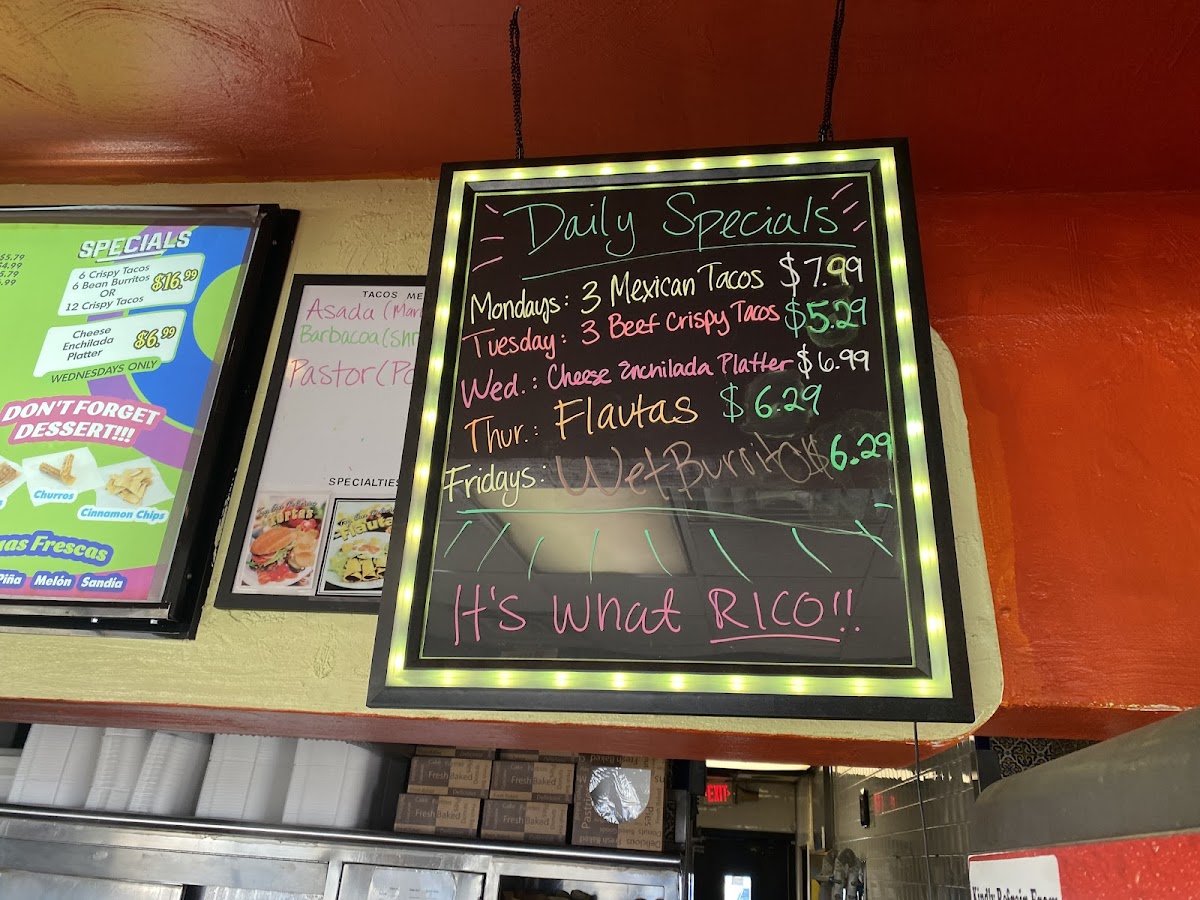 $5.79
$4.99
SPECIALS
6 Crispy Tacos
6 Bean Burritos
OR
12 Crispy Tacos
$16.99
Cheese
Enchilada
Platter
$6.99
WEDNESDAYS ONLY
DON'T FORGET
DESSERT!!!
Churros
Cinnamon Chips
Frescas
Piña Melón Sandía
TACOS
Asada
Barbacoa
Pastor
SPECIALTIES
Daily Specials
Mondays: 3 Mexican Tacos $7.99
Tuesday: 3 Beef Crispy Tacos $5.29
Wed.: Cheese Enchilada Platter $6.99
Thur.: Flautas $6.29
Fridays: Wet Burrito $6.29
It's what RICO!!
Fresh Baked
Fresh Baked
Fresh Baked
Fresh Baked
EXIT
Kindly Refrain From